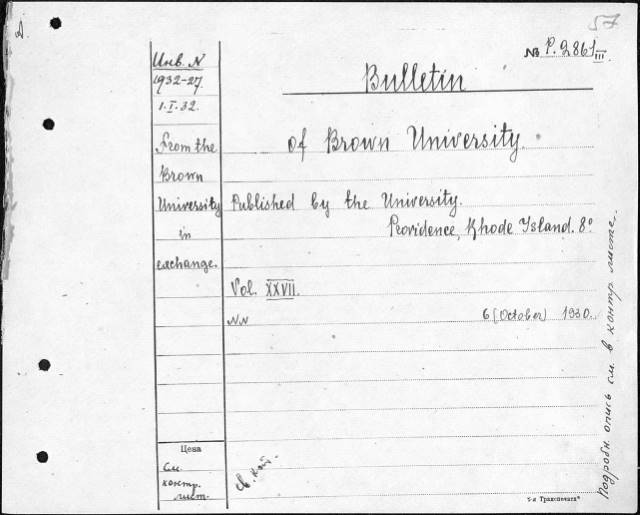 57
№ P.2861 III
Инв. N
1932-27.
1.I.32.
From the
Brown
University
in
exchange.
Bulletin
of Brown University.
Published by the University.
Providence, Rhode Island. 8º
Vol. XXVII.
NN 6 (October) 1930.
Цена
См.
контр.
лист.
Подробн. опись см. в контр. листе.